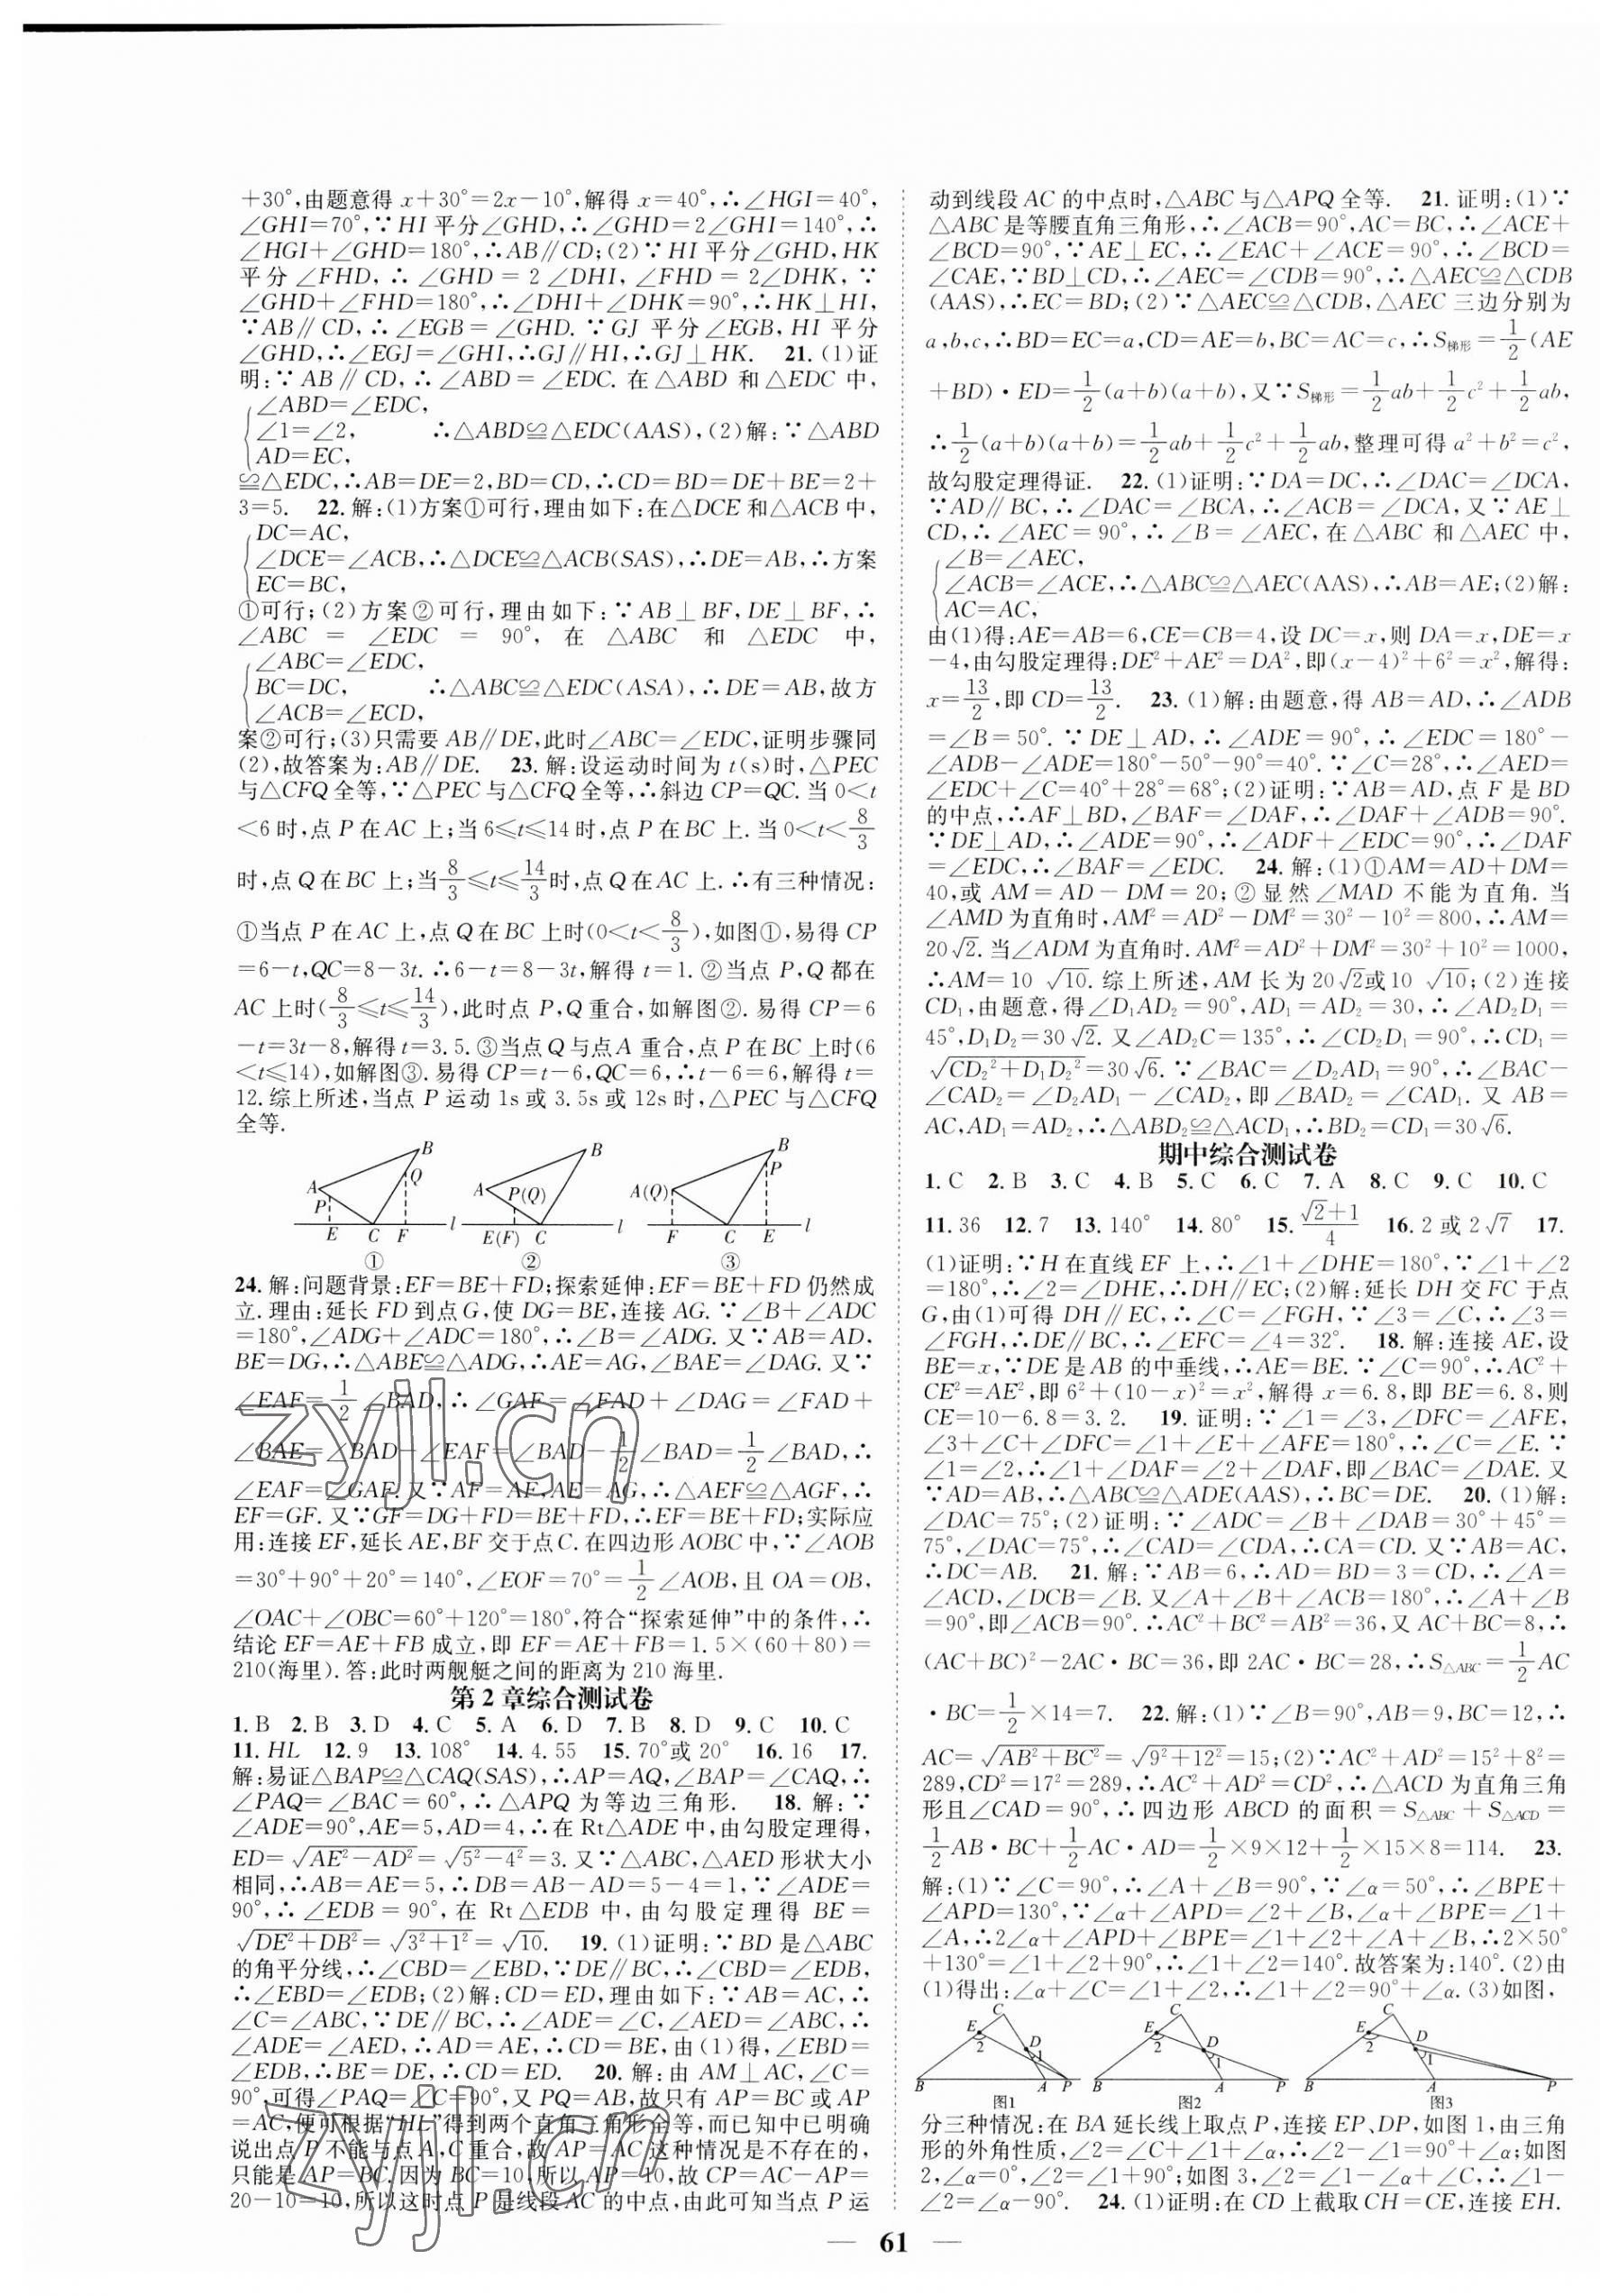 +30°,由题意得 x+30°=2x-10°,解得 x=40°,∴∠HGI=40°,
∠GHI=70°,∵HI 平分∠GHD,∴∠GHD=2∠GHI=140°,∴
∠HGI+∠GHD=180°,∴AB∥CD;(2)∵HI 平分∠GHD,HK
平分∠FHD,∴∠GHD=2∠DHI,∠FHD=2∠DHK,∵
∠GHD+∠FHD=180°,∴∠DHI+∠DHK=90°,∴HK⊥HI,
∵AB∥CD,∴∠EGB=∠GHD.∵GJ 平分∠EGB,HI 平分
∠GHD,∴∠EGJ=∠GHI,∴GJ∥HI,∴GJ⊥HK. 21.(1)证
明:∵AB∥CD,∴∠ABD=∠EDC.在△ABD 和△EDC 中,
∠ABD=∠EDC,
∠1=∠2, ∴△ABD≌△EDC(AAS),(2)解:∵△ABD
AD=EC,
≌△EDC,∴AB=DE=2,BD=CD,∴CD=BD=DE+BE=2+
3=5. 22.解:(1)方案①可行,理由如下:在△DCE 和△ACB 中,
DC=AC,
∠DCE=∠ACB,∴△DCE≌△ACB(SAS),∴DE=AB,∴方案
EC=BC,
①可行;(2)方案②可行,理由如下:∵AB⊥BF,DE⊥BF,∴
∠ABC=∠EDC=90°,在△ABC 和△EDC 中,
∠ABC=∠EDC,
BC=DC, ∴△ABC≌△EDC(ASA),∴DE=AB,故方
∠ACB=∠ECD,
案②可行;(3)只需要 AB∥DE,此时∠ABC=∠EDC,证明步骤同
(2),故答案为:AB∥DE. 23.解:设运动时间为 t(s)时,△PEC
与△CFQ 全等,∵△PEC 与△CFQ 全等,∴斜边 CP=QC.当 0<t
<6 时,点 P 在 AC 上;当 6≤t≤14 时,点 P 在 BC 上.当 0<t<8/3
时,点 Q 在 BC 上;当 8/3≤t≤14/3 时,点 Q 在 AC 上.∴有三种情况:
①当点 P 在 AC 上,点 Q 在 BC 上时(0<t<8/3),如图①,易得 CP
=6-t,QC=8-3t.∴6-t=8-3t,解得 t=1.②当点 P,Q 都在
AC 上时(8/3≤t≤14/3),此时点 P,Q 重合,如解图②.易得 CP=6
-t=3t-8,解得 t=3.5.③当点 Q 与点 A 重合,点 P 在 BC 上时(6
<t≤14),如解图③.易得 CP=t-6,QC=6,∴t-6=6,解得 t=
12.综上所述,当点 P 运动 1s 或 3.5s 或 12s 时,△PEC 与△CFQ
全等.
A B P Q E C F l
①
A B P(Q) E(F) C l
②
A(Q) B P F C E l
③
24.解:问题背景:EF=BE+FD;探索延伸:EF=BE+FD 仍然成
立.理由:延长 FD 到点 G,使 DG=BE,连接 AG.∵∠B+∠ADC
=180°,∠ADG+∠ADC=180°,∴∠B=∠ADG.又∵AB=AD,
BE=DG,∴△ABE≌△ADG,∴AE=AG,∠BAE=∠DAG.又∵
∠EAF=1/2∠BAD,∴∠GAF=∠FAD+∠DAG=∠FAD+
∠BAE=∠BAD-∠EAF=∠BAD-1/2∠BAD=1/2∠BAD,∴
∠EAF=∠GAF.又∵AF=AF,AE=AG,∴△AEF≌△AGF,∴
EF=GF.又∵GF=DG+FD=BE+FD,∴EF=BE+FD;实际应
用:连接 EF,延长 AE,BF 交于点 C.在四边形 AOBC 中,∵∠AOB
=30°+90°+20°=140°,∠EOF=70°=1/2∠AOB,且 OA=OB,
∠OAC+∠OBC=60°+120°=180°,符合“探索延伸”中的条件,∴
结论 EF=AE+FB 成立,即 EF=AE+FB=1.5×(60+80)=
210(海里).答:此时两舰艇之间的距离为 210 海里.
第 2 章综合测试卷
1.B 2.B 3.D 4.C 5.A 6.D 7.B 8.D 9.C 10.C
11.HL 12.9 13.108° 14.4.55 15.70°或 20° 16.16 17.
解:易证△BAP≌△CAQ(SAS),∴AP=AQ,∠BAP=∠CAQ,∴
∠PAQ=∠BAC=60°,∴△APQ 为等边三角形. 18.解:∵
∠ADE=90°,AE=5,AD=4,∴在 Rt△ADE 中,由勾股定理得,
ED=√(AE²-AD²)=√(5²-4²)=3.又∵△ABC,△AED 形状大小
相同,∴AB=AE=5,∴DB=AB-AD=5-4=1,∵∠ADE=
90°,∴∠EDB=90°,在 Rt△EDB 中,由勾股定理得 BE=
√(DE²+DB²)=√(3²+1²)=√10. 19.(1)证明:∵BD 是△ABC
的角平分线,∴∠CBD=∠EBD,∵DE∥BC,∴∠CBD=∠EDB,
∴∠EBD=∠EDB;(2)解:CD=ED,理由如下:∵AB=AC,∴
∠C=∠ABC,∵DE∥BC,∴∠ADE=∠C,∠AED=∠ABC,∴
∠ADE=∠AED,∴AD=AE,∴CD=BE,由(1)得,∠EBD=
∠EDB,∴BE=DE,∴CD=ED. 20.解:由 AM⊥AC,∠C=
90°,可得∠PAQ=∠C=90°,又 PQ=AB,故只有 AP=BC 或 AP
=AC,便可根据“HL”得到两个直角三角形全等,而已知中已明确
说出点 P 不能与点 A,C 重合,故 AP=AC 这种情况是不存在的,
只能是 AP=BC.因为 BC=10,所以 AP=10,故 CP=AC-AP=
20-10=10,所以这时点 P 是线段 AC 的中点,由此可知当点 P 运
动到线段 AC 的中点时,△ABC 与△APQ 全等. 21.证明:(1)∵
△ABC 是等腰直角三角形,∴∠ACB=90°,AC=BC,∴∠ACE+
∠BCD=90°,∵AE⊥EC,∴∠EAC+∠ACE=90°,∴∠BCD=
∠CAE,∵BD⊥CD,∴∠AEC=∠CDB=90°,∴△AEC≌△CDB
(AAS),∴EC=BD;(2)∵△AEC≌△CDB,△AEC 三边分别为
a,b,c,∴BD=EC=a,CD=AE=b,BC=AC=c,∴S梯形=1/2(AE
+BD)·ED=1/2(a+b)(a+b),又∵S梯形=1/2ab+1/2c²+1/2ab,
∴1/2(a+b)(a+b)=1/2ab+1/2c²+1/2ab,整理可得 a²+b²=c²,
故勾股定理得证. 22.(1)证明:∵DA=DC,∴∠DAC=∠DCA,
∵AD∥BC,∴∠DAC=∠BCA,∴∠ACB=∠DCA,又∵AE⊥
CD,∴∠AEC=90°,∴∠B=∠AEC,在△ABC 和△AEC 中,
∠B=∠AEC,
∠ACB=∠ACE,∴△ABC≌△AEC(AAS),∴AB=AE;(2)解:
AC=AC,
由(1)得:AE=AB=6,CE=CB=4,设 DC=x,则 DA=x,DE=x
-4,由勾股定理得:DE²+AE²=DA²,即(x-4)²+6²=x²,解得:
x=13/2,即 CD=13/2. 23.(1)解:由题意,得 AB=AD,∴∠ADB
=∠B=50°.∵DE⊥AD,∴∠ADE=90°,∴∠EDC=180°-
∠ADB-∠ADE=180°-50°-90°=40°.∵∠C=28°,∴∠AED=
∠EDC+∠C=40°+28°=68°;(2)证明:∵AB=AD,点 F 是 BD
的中点,∴AF⊥BD,∠BAF=∠DAF,∴∠DAF+∠ADB=90°.
∵DE⊥AD,∴∠ADE=90°,∴∠ADF+∠EDC=90°,∴∠DAF
=∠EDC,∴∠BAF=∠EDC. 24.解:(1)①AM=AD+DM=
40,或 AM=AD-DM=20;②显然∠MAD 不能为直角.当
∠AMD 为直角时,AM²=AD²-DM²=30²-10²=800,∴AM=
20√2.当∠ADM 为直角时.AM²=AD²+DM²=30²+10²=1000,
∴AM=10√10.综上所述,AM 长为 20√2或10√10;(2)连接
CD₁,由题意,得∠D₁AD₂=90°,AD₁=AD₂=30,∴∠AD₂D₁=
45°,D₁D₂=30√2.又∠AD₂C=135°,∴∠CD₂D₁=90°,∴CD₁=
√(CD₂²+D₁D₂²)=30√6.∵∠BAC=∠D₂AD₁=90°,∴∠BAC-
∠CAD₂=∠D₂AD₁-∠CAD₂,即∠BAD₂=∠CAD₁.又 AB=
AC,AD₁=AD₂,∴△ABD₂≌△ACD₁,∴BD₂=CD₁=30√6.
期中综合测试卷
1.C 2.B 3.C 4.B 5.C 6.C 7.A 8.C 9.C 10.C
11.36 12.7 13.140° 14.80° 15.(√2+1)/4 16.2 或 2√7 17.
(1)证明:∵H 在直线 EF 上,∴∠1+∠DHE=180°,∵∠1+∠2
=180°,∴∠2=∠DHE,∴DH∥EC;(2)解:延长 DH 交 FC 于点
G,由(1)可得 DH∥EC,∴∠C=∠FGH,∵∠3=∠C,∴∠3=
∠FGH,∴DE∥BC,∴∠EFC=∠4=32°. 18.解:连接 AE,设
BE=x,∵DE 是 AB 的中垂线,∴AE=BE.∵∠C=90°,∴AC²+
CE²=AE²,即 6²+(10-x)²=x²,解得 x=6.8,即 BE=6.8,则
CE=10-6.8=3.2. 19.证明:∵∠1=∠3,∠DFC=∠AFE,
∠3+∠C+∠DFC=∠1+∠E+∠AFE=180°,∴∠C=∠E.∵
∠1=∠2,∴∠1+∠DAF=∠2+∠DAF,即∠BAC=∠DAE.又
∵AD=AB,∴△ABC≌△ADE(AAS),∴BC=DE. 20.(1)解:
∠DAC=75°;(2)证明:∵∠ADC=∠B+∠DAB=30°+45°=
75°,∠DAC=75°,∴∠CAD=∠CDA,∴CA=CD.又∵AB=AC,
∴DC=AB. 21.解:∵AB=6,∴AD=BD=3=CD,∴∠A=
∠ACD,∠DCB=∠B.又∠A+∠B+∠ACB=180°,∴∠A+∠B
=90°,即∠ACB=90°.∴AC²+BC²=AB²=36,又 AC+BC=8,∴
(AC+BC)²-2AC·BC=36,即 2AC·BC=28,∴S△ABC=1/2AC
·BC=1/2×14=7. 22.解:(1)∵∠B=90°,AB=9,BC=12,∴
AC=√(AB²+BC²)=√(9²+12²)=15;(2)∵AC²+AD²=15²+8²=
289,CD²=17²=289,∴AC²+AD²=CD²,∴△ACD 为直角三角
形且∠CAD=90°,∴四边形 ABCD 的面积=S△ABC+S△ACD=
1/2AB·BC+1/2AC·AD=1/2×9×12+1/2×15×8=114. 23.
解:(1)∵∠C=90°,∴∠A+∠B=90°,∵∠α=50°,∴∠BPE+
∠APD=130°,∵∠α+∠APD=∠2+∠B,∠α+∠BPE=∠1+
∠A,∴2∠α+∠APD+∠BPE=∠1+∠2+∠A+∠B,∴2×50°
+130°=∠1+∠2+90°,∴∠1+∠2=140°.故答案为:140°.(2)由
(1)得出:∠α+∠C=∠1+∠2,∴∠1+∠2=90°+∠α.(3)如图,
C E D 2 1 B A P
图1
C E D 2 1 B A P
图2
C E D 2 1 B A P
图3
分三种情况:在 BA 延长线上取点 P,连接 EP、DP,如图 1,由三角
形的外角性质,∠2=∠C+∠1+∠α,∴∠2-∠1=90°+∠α;如图
2,∠α=0°,∠2=∠1+90°;如图 3,∠2=∠1-∠α+∠C,∴∠1-
∠2=∠α-90°. 24.(1)证明:在 CD 上截取 CH=CE,连接 EH.
61
zyjl.cn
zyjl.cn